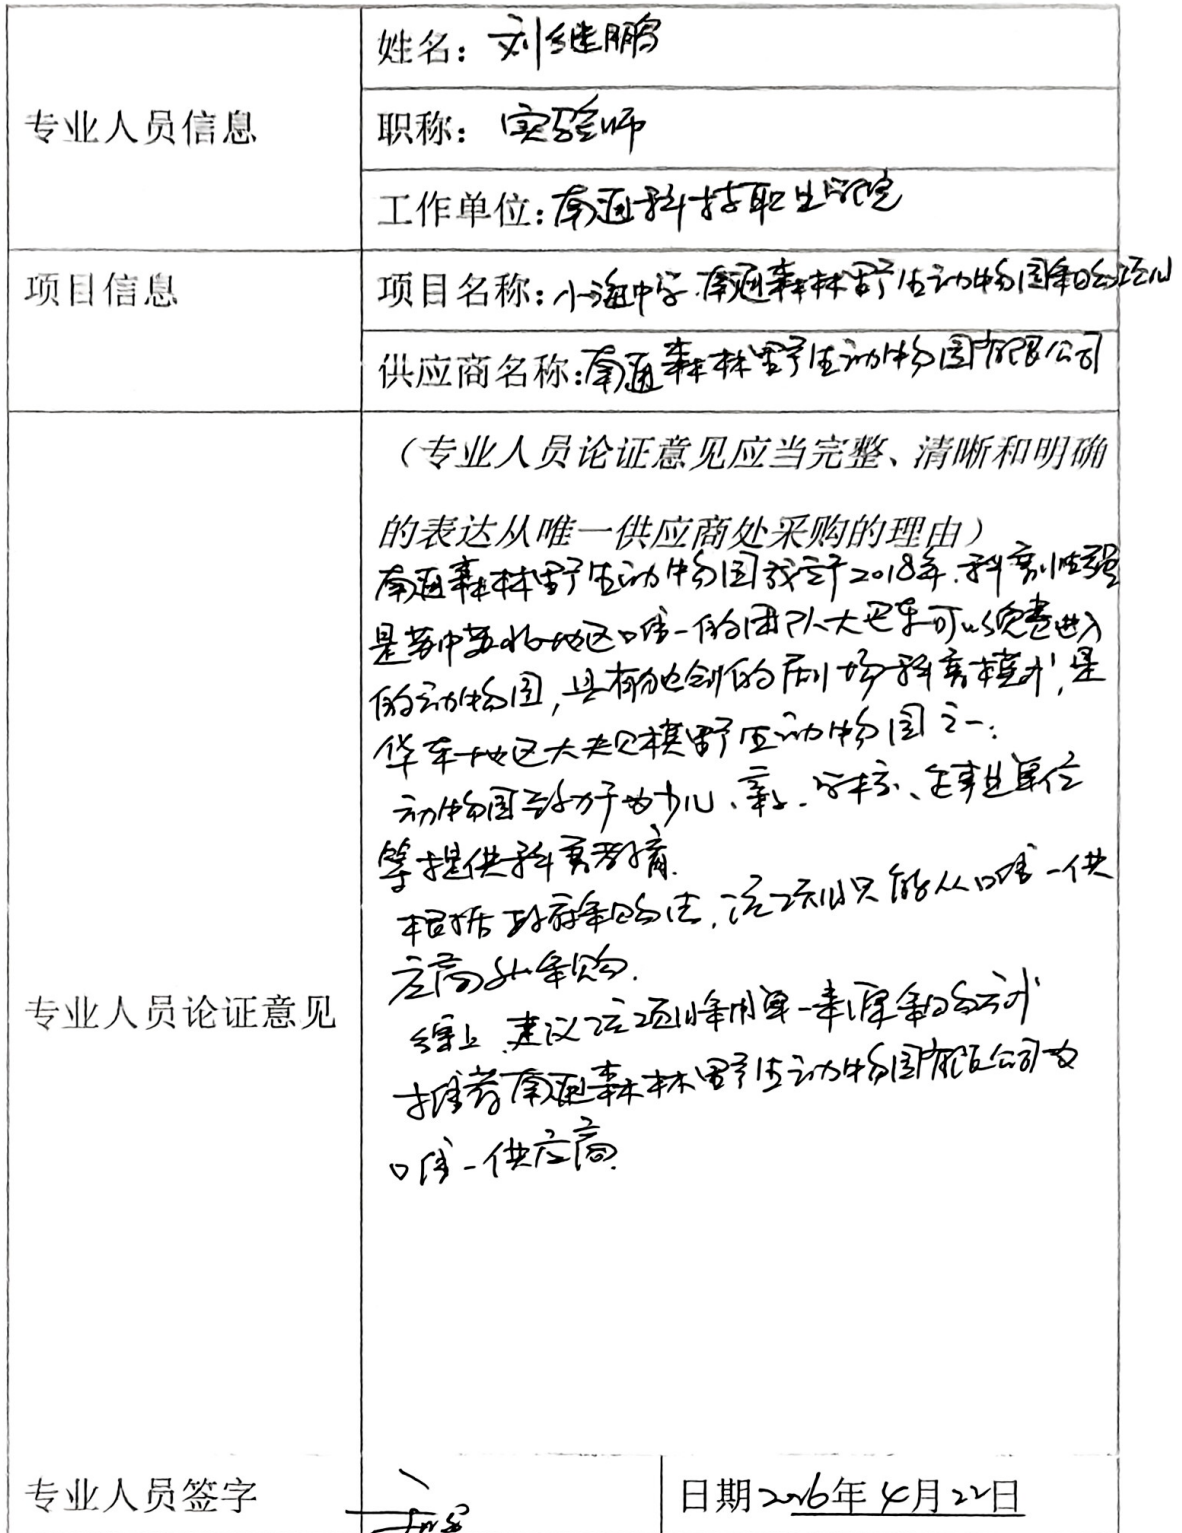 专业人员信息
姓名：刘继鹏
职称：实验师
工作单位：南通科技职业学院
项目信息
项目名称：小海中学.南通森林野生动物园采购项目
供应商名称：南通森林野生动物园有限公司
专业人员论证意见
（专业人员论证意见应当完整、清晰和明确
的表达从唯一供应商处采购的理由）
南通森林野生动物园成立于2018年.科普性强
是苏中苏北地区唯一的团队大巴车可以免费进入
的动物园，具有独创的剧场科普模式，是
华东地区大规模野生动物园之一.
动物园致力于为少儿、亲子、学校、企事业单位
等提供科普教育.
根据政府采购法，该项目只能从唯一供
应商处采购.
综上.建议该项目采用单一来源采购方式
推荐南通森林野生动物园有限公司为
唯一供应商.
专业人员签字
日期2026年4月22日